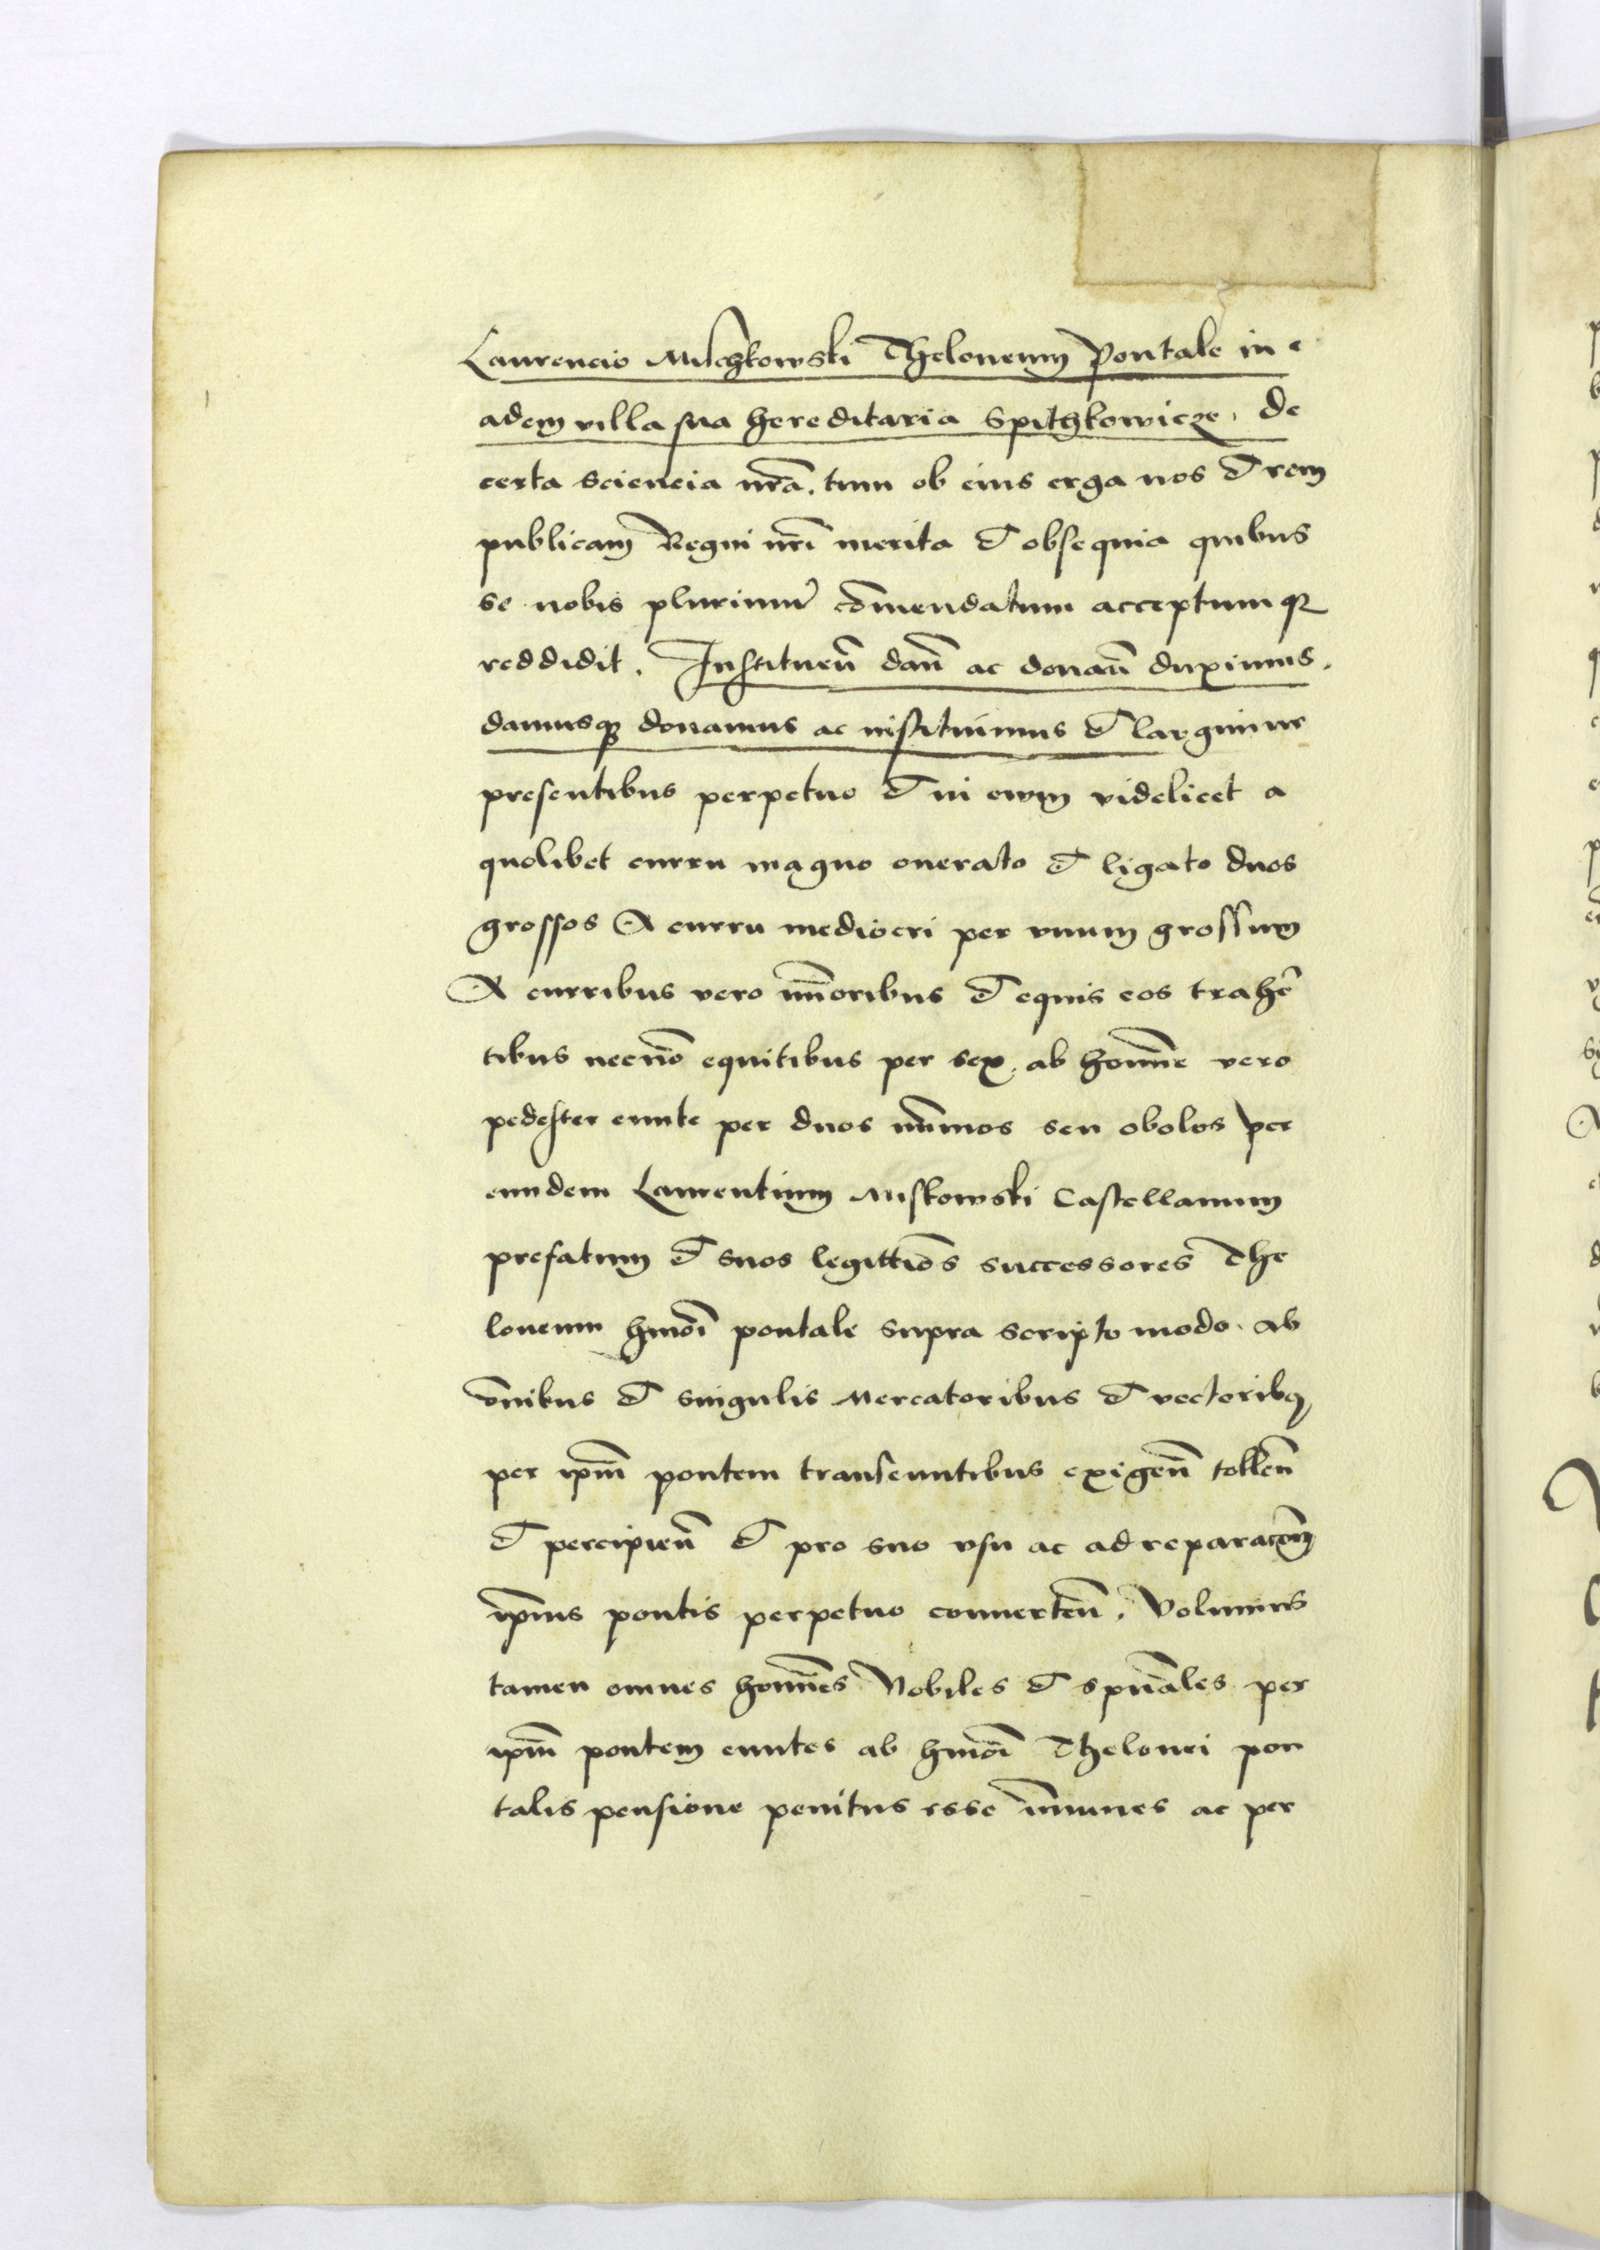 Laurencio Mischkowski Theloneum Pontale in e
adem villa sua hereditaria Spithkowicze. de
certa sciencia nr̄a. tum ob eius erga nos et rem
publicam Regni nr̄i merita et obsequia quibus
se nobis plurimū cōmendatum acceptumqꝫ
reddidit. Instituen̄ dan̄ ac donan̄ duximus.
damusqꝫ donamus ac instituimus et largimur
presentibus perpetuo et in ewm videlicet a
quolibet curru magno onerato et ligato duos
grossos A curru mediocri per vnum grossum
A curribus vero mīnoribus et equis eos trahē
tibus necnō equitibus per sex. ab homīne vero
pedester eunte per duos nūmmos seu obolos per
eundem Laurentium Miskowski Castellanum
prefatum et suos legittīos successores The
loneum hmōi pontale supra scripto modo. ab
om̄nibus et singulis Mercatoribus et vectoribꝫ
per ip̄m pontem transeuntibus exigen̄ tollen̄
et percipien̄ et pro suo vsu ac ad reparacōm
ip̄ius pontis perpetuo conuerten̄. Volumus
tamen omnes homīnes Nobiles et spūales per
ip̄m pontem euntes ab hmōi Thelonei pon
talis pensione penitus esse im̄munes ac per